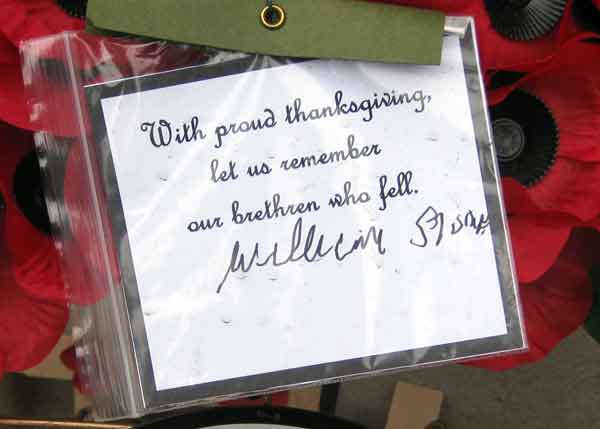 With proud thanksgiving,
let us remember
our brethren who fell.
William